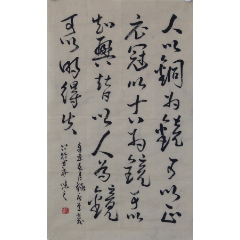 人以銅为鏡可以正
衣冠以古为鏡可以
知興替以人为鏡
可以明得失